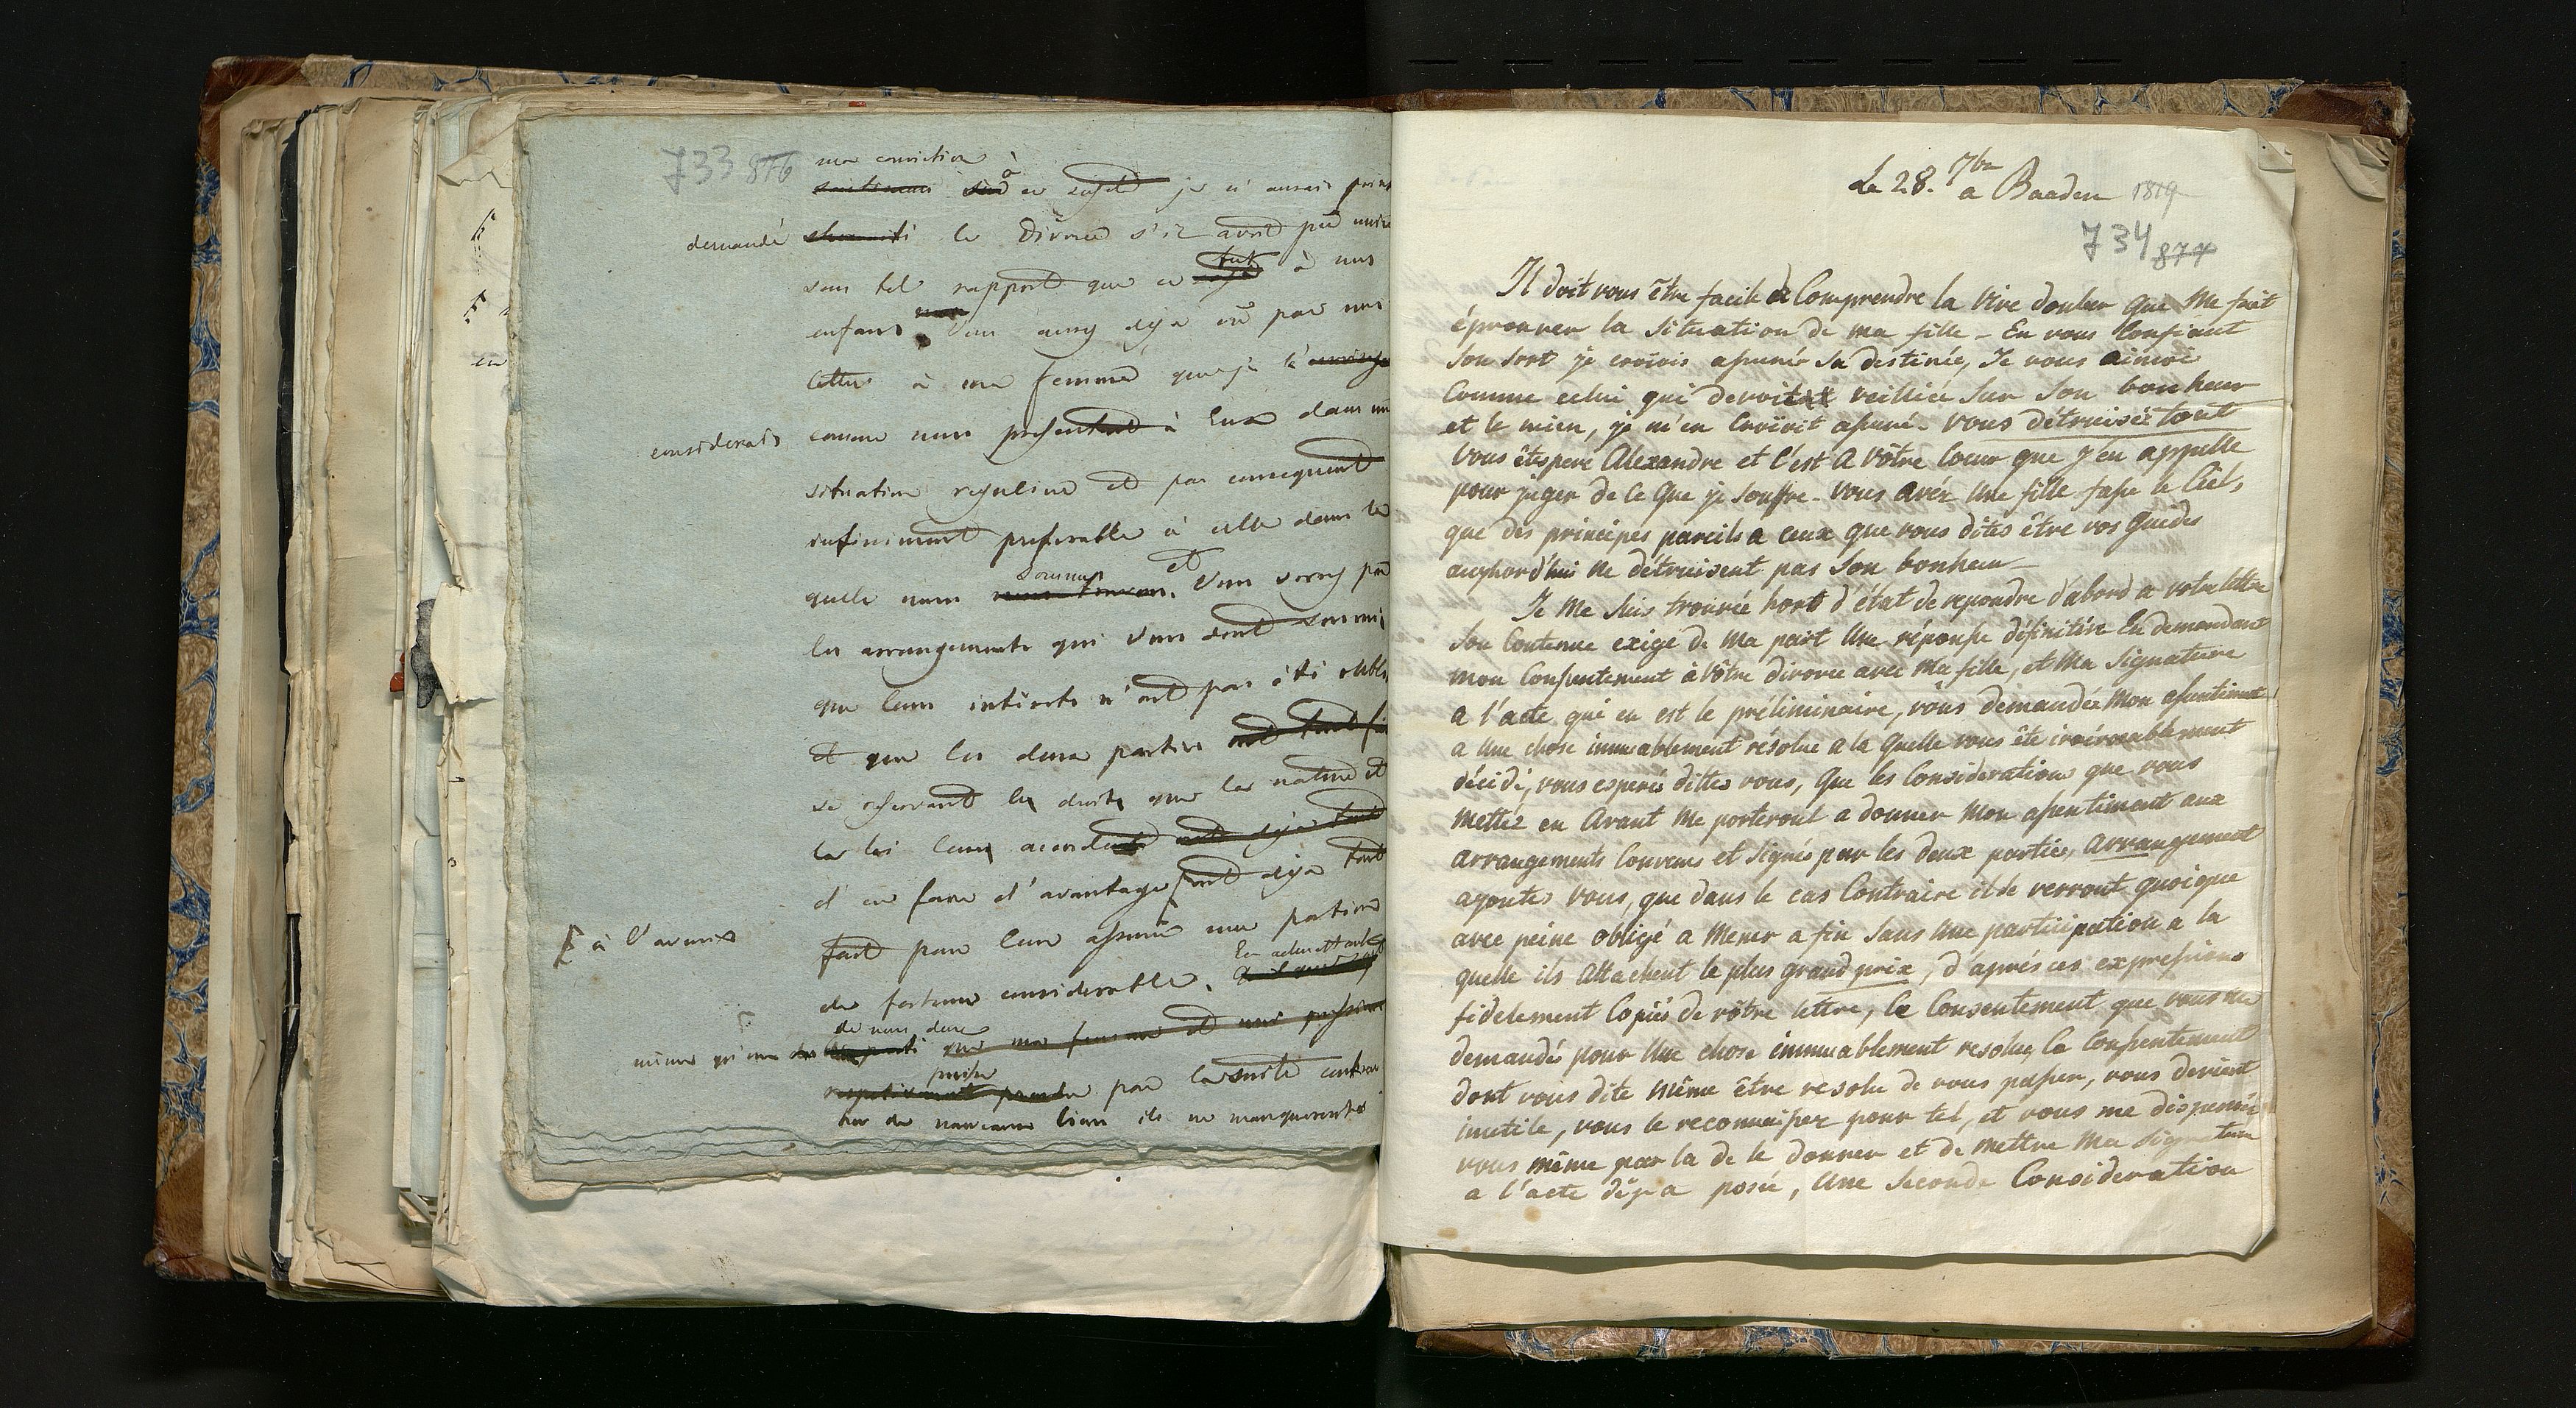 733 876
ma conviction à
ce sujet je n'aurais point
demandé le Divorce s'il avoit pu nuire
sous tel rapport que ce fut à nos
enfans Vous aurez déja vû par ma
lettre à ma femme que je le
considerais comme nous à eux dans une
situation reguliere et par consequent
infiniment preferable à celle dans la
quelle nous sommes et Vous verrez par
les arrangements qui Vous sont soumis
que leurs intérets n'ont pas été oubli
et que les deux parties
se reservant les droits que la nature et
la loi leurs
d'en faire d'avantage ont déja tout
à l'avenir
fait pour leur assurer une portion
de fortune considerable. En admettant
même qu'un de nous deux
puise par la suite contrac
ter de nouveaux liens ils ne manqueront
Le 28. 7bre a Baaden 1819
734 877
Il doit vous être facile de Comprendre la vive douleur que me fait
éprouver la situation de ma fille – En vous Confiant
son sort je croiois assurér sa destinée, Je vous aimai
Comme celui qui devoit veilliér sur son bonheur
et le mien, je m'en Croïoit assuré. Vous détruisèz tout
Vous êtes pere Alexandre et C'est A vôtre Coeur que j'en appelle
pour juger de Ce que je souffre. Vous avéz une fille fasse le Ciel,
que des principes pareils a ceux que vous dites être vos guides
aujhord'hui ne détruisent pas son bonheur –
Je me suis trouvée hors d'état de repondre d'abord a votre lettre
son Contenue exige de ma part une réponse définitive En demandant
mon Consentement à vôtre divorce avec ma fille, et ma signature
a l'acte qui en est le préliminaire, vous demandéz mon assentiment
a une chose immuablement résolue a la quelle vous ête irrévocablement
décidé, vous esperés dittes vous, que les Considerations que vous
mettéz en Avant me porteront a donner mon assentiment aux
arrangements Convenus et signés par les deux parties, arrangement
ajoutes vous, que dans le cas Contraire ils se verront quoique
avec peine obligé a mener a fin sans une participation a la
quelle ils attachent le plus grand prix, d'aprés ces expressions
fidelement Copiés de vôtre lettre, le Consentement que vous me
demandés pour une chose immuablement resolue, le Consentement
dont vous dite même être resolu de vous passer, vous devient
inutile, vous le reconnaissez pour tel, et vous me dispensés
vous même par la de le donner et de mettre ma signature
a l'acte déja posé, Une seconde Consideration